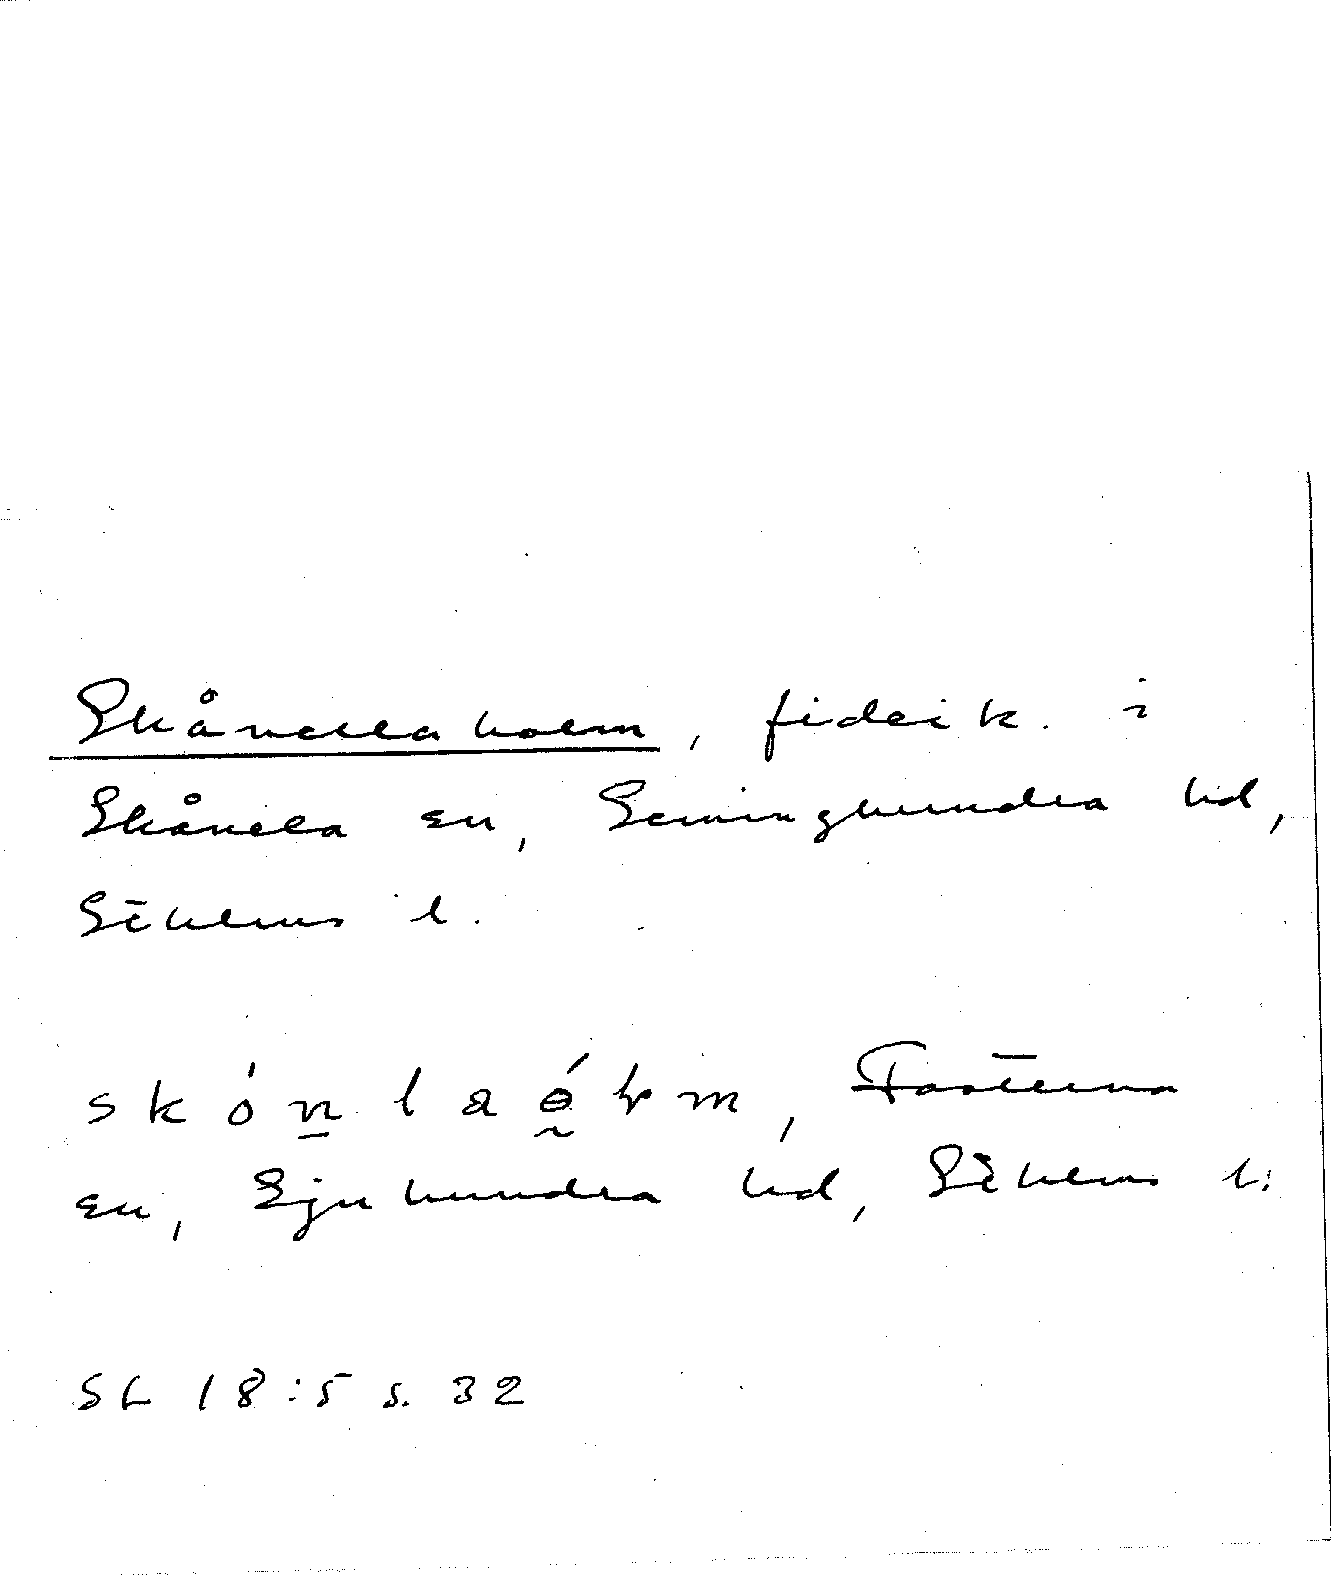 Skånellaholm, fideik. i
Skånella sn, Seminghundra hd,
Sthlms l.
skónlaólm, Fasterna
sn, Sjuhundra hd, Sthlms l:
SL 18:5 s. 32